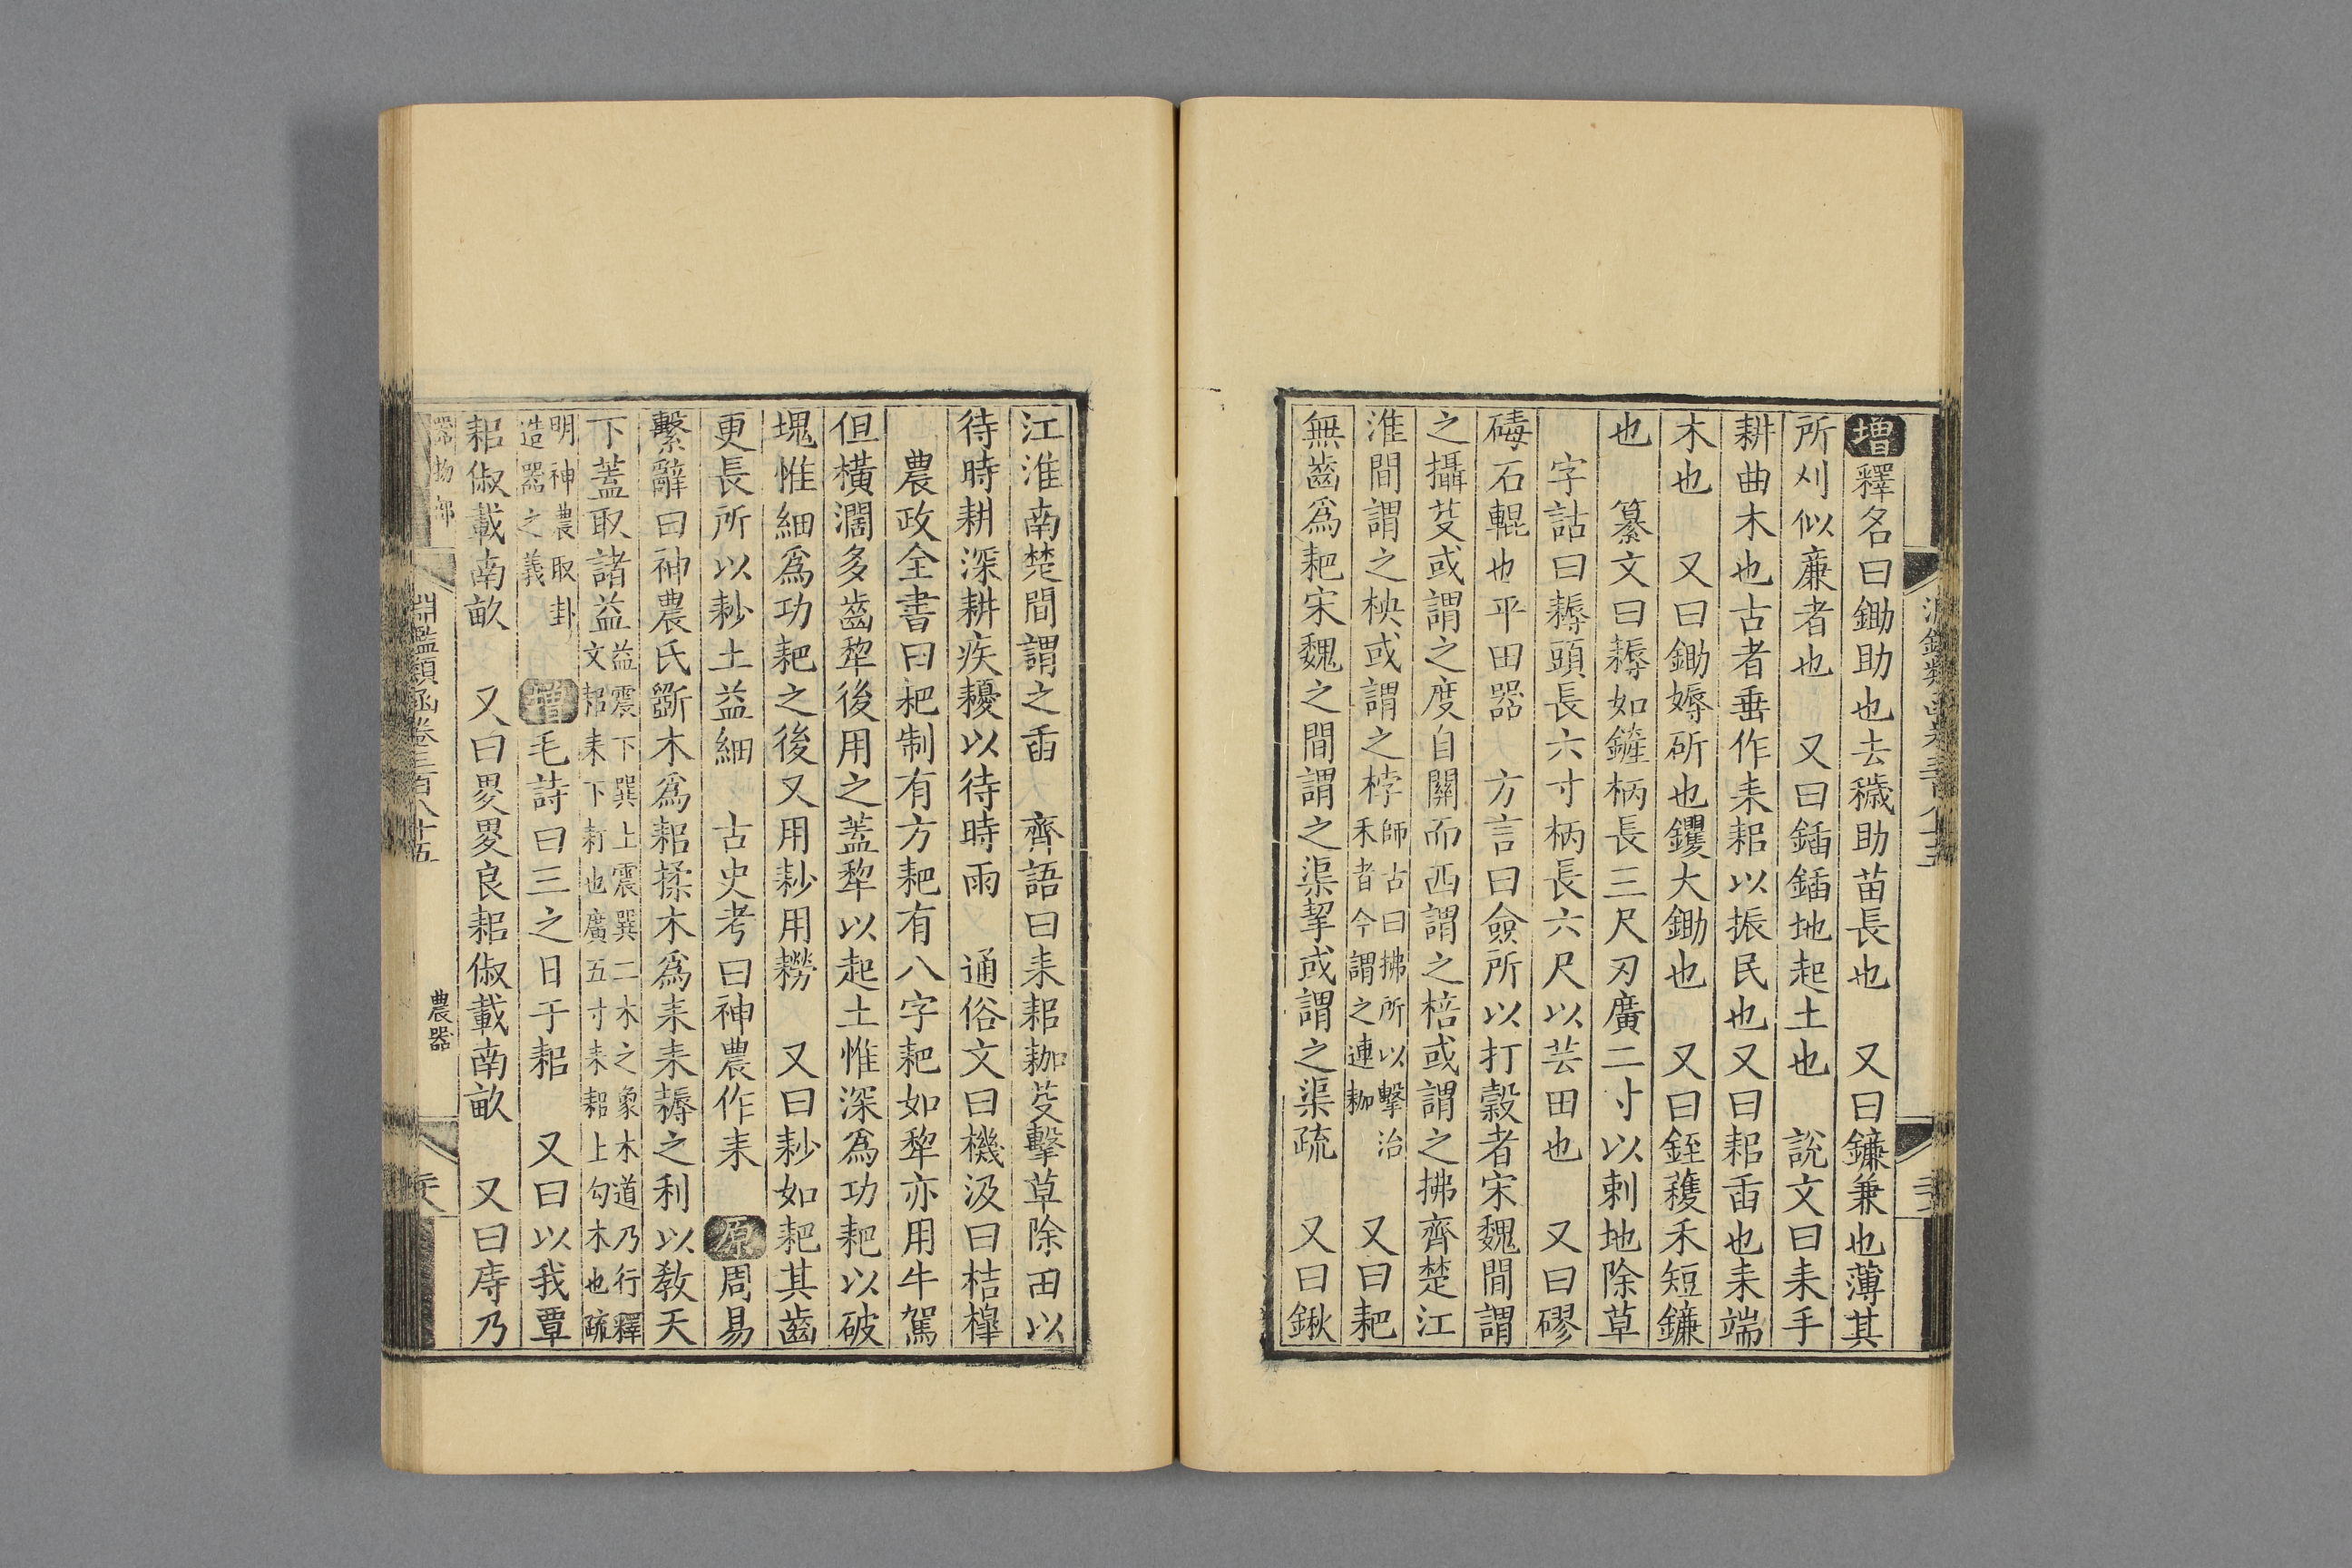 增釋名曰鋤助也去穢助苗長也　又曰鐮兼也薄其
所刈似廉者也　又曰鍤鍤地起土也　說文曰耒手
耕曲木也古者垂作耒耜以振民也又曰耜臿也耒端
木也　又曰鋤媷斫也钁大鋤也　又曰銍穫禾短鐮
也　纂文曰耨如鏟柄長三尺刃廣二寸以刺地除草
字詁曰耨頭長六寸柄長六尺以芸田也　又曰磟
碡石輥也平田器　方言曰僉所以打穀者宋魏間謂
之攝殳或謂之度自關而西謂之棓或謂之拂齊楚江
淮間謂之柍或謂之桲師古曰拂所以擊治禾者今謂之連耞　又曰耙
無齒爲耙宋魏之間謂之渠挐或謂之渠疏　又曰鍬
江淮南楚間謂之臿　齊語曰耒耜耞芟擊草除田以
待時耕深耕疾耰以待時雨　通俗文曰機汲曰桔槹
農政全書曰耙制有方耙有八字耙如犂亦用牛駕
但橫濶多齒犂後用之蓋犂以起土惟深爲功耙以破
塊惟細爲功耙之後又用耖用耮　又曰耖如耙其齒
更長所以耖土益細　古史考曰神農作耒　原周易
繫辭曰神農氏斲木爲耜揉木爲耒耒耨之利以敎天
下蓋取諸益益震下巽上震巽二木之象木道乃行釋文耜耒下耓也廣五寸耒耜上勾木也疏
明神農取卦造器之義　增毛詩曰三之日于耜　又曰以我覃
耜俶載南畝　又曰畟畟良耜俶載南畝　又曰庤乃
器物部　淵鑑類函卷三百八十五　農器